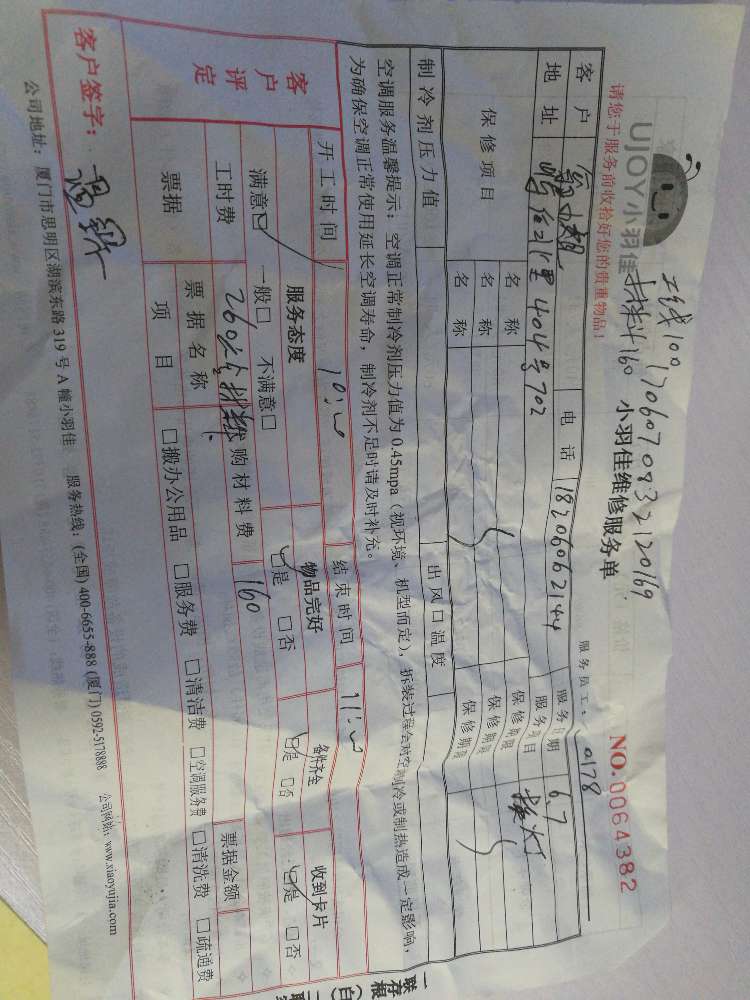 工钱100 1706070832120169
材料160
UJOY小羽佳 小羽佳维修服务单 NO.0064382
请您于服务前收拾好您的贵重物品！ 服务员工：0178
客户 电话 18206062144 服务日期 6.7
地址 404号702 服务项目 换灯
保修项目 名称 保修期限
名称 保修期限
名称 保修期限
制冷剂压力值 出风口温度
空调服务温馨提示：空调正常制冷剂压力值为0.45mpa（视环境、机型而定），拆装过程会对空调制冷或制热造成一定影响，
为确保空调正常使用延长空调寿命，制冷剂不足时请及时补充。
开工时间 10:00 结束时间 11:00
客户评定 服务态度 物品完好 备件齐全 收到卡片
满意☑ 一般□ 不满意□ ☑是 □否 ☑是 □否 ☑是 □否
工时费 260 代购材料费 160
票据 票据名称 票据金额
项目 □搬办公用品 □服务费 □清洁费 □空调服务费 □清洗费 □疏通费
客户签字：
公司地址：厦门市思明区湖滨东路319号A幢小羽佳 服务热线：(全国)400-6655-888 (厦门)0592-5178888 公司网站：www.xiaoyujia.com
一联存根（白）二联